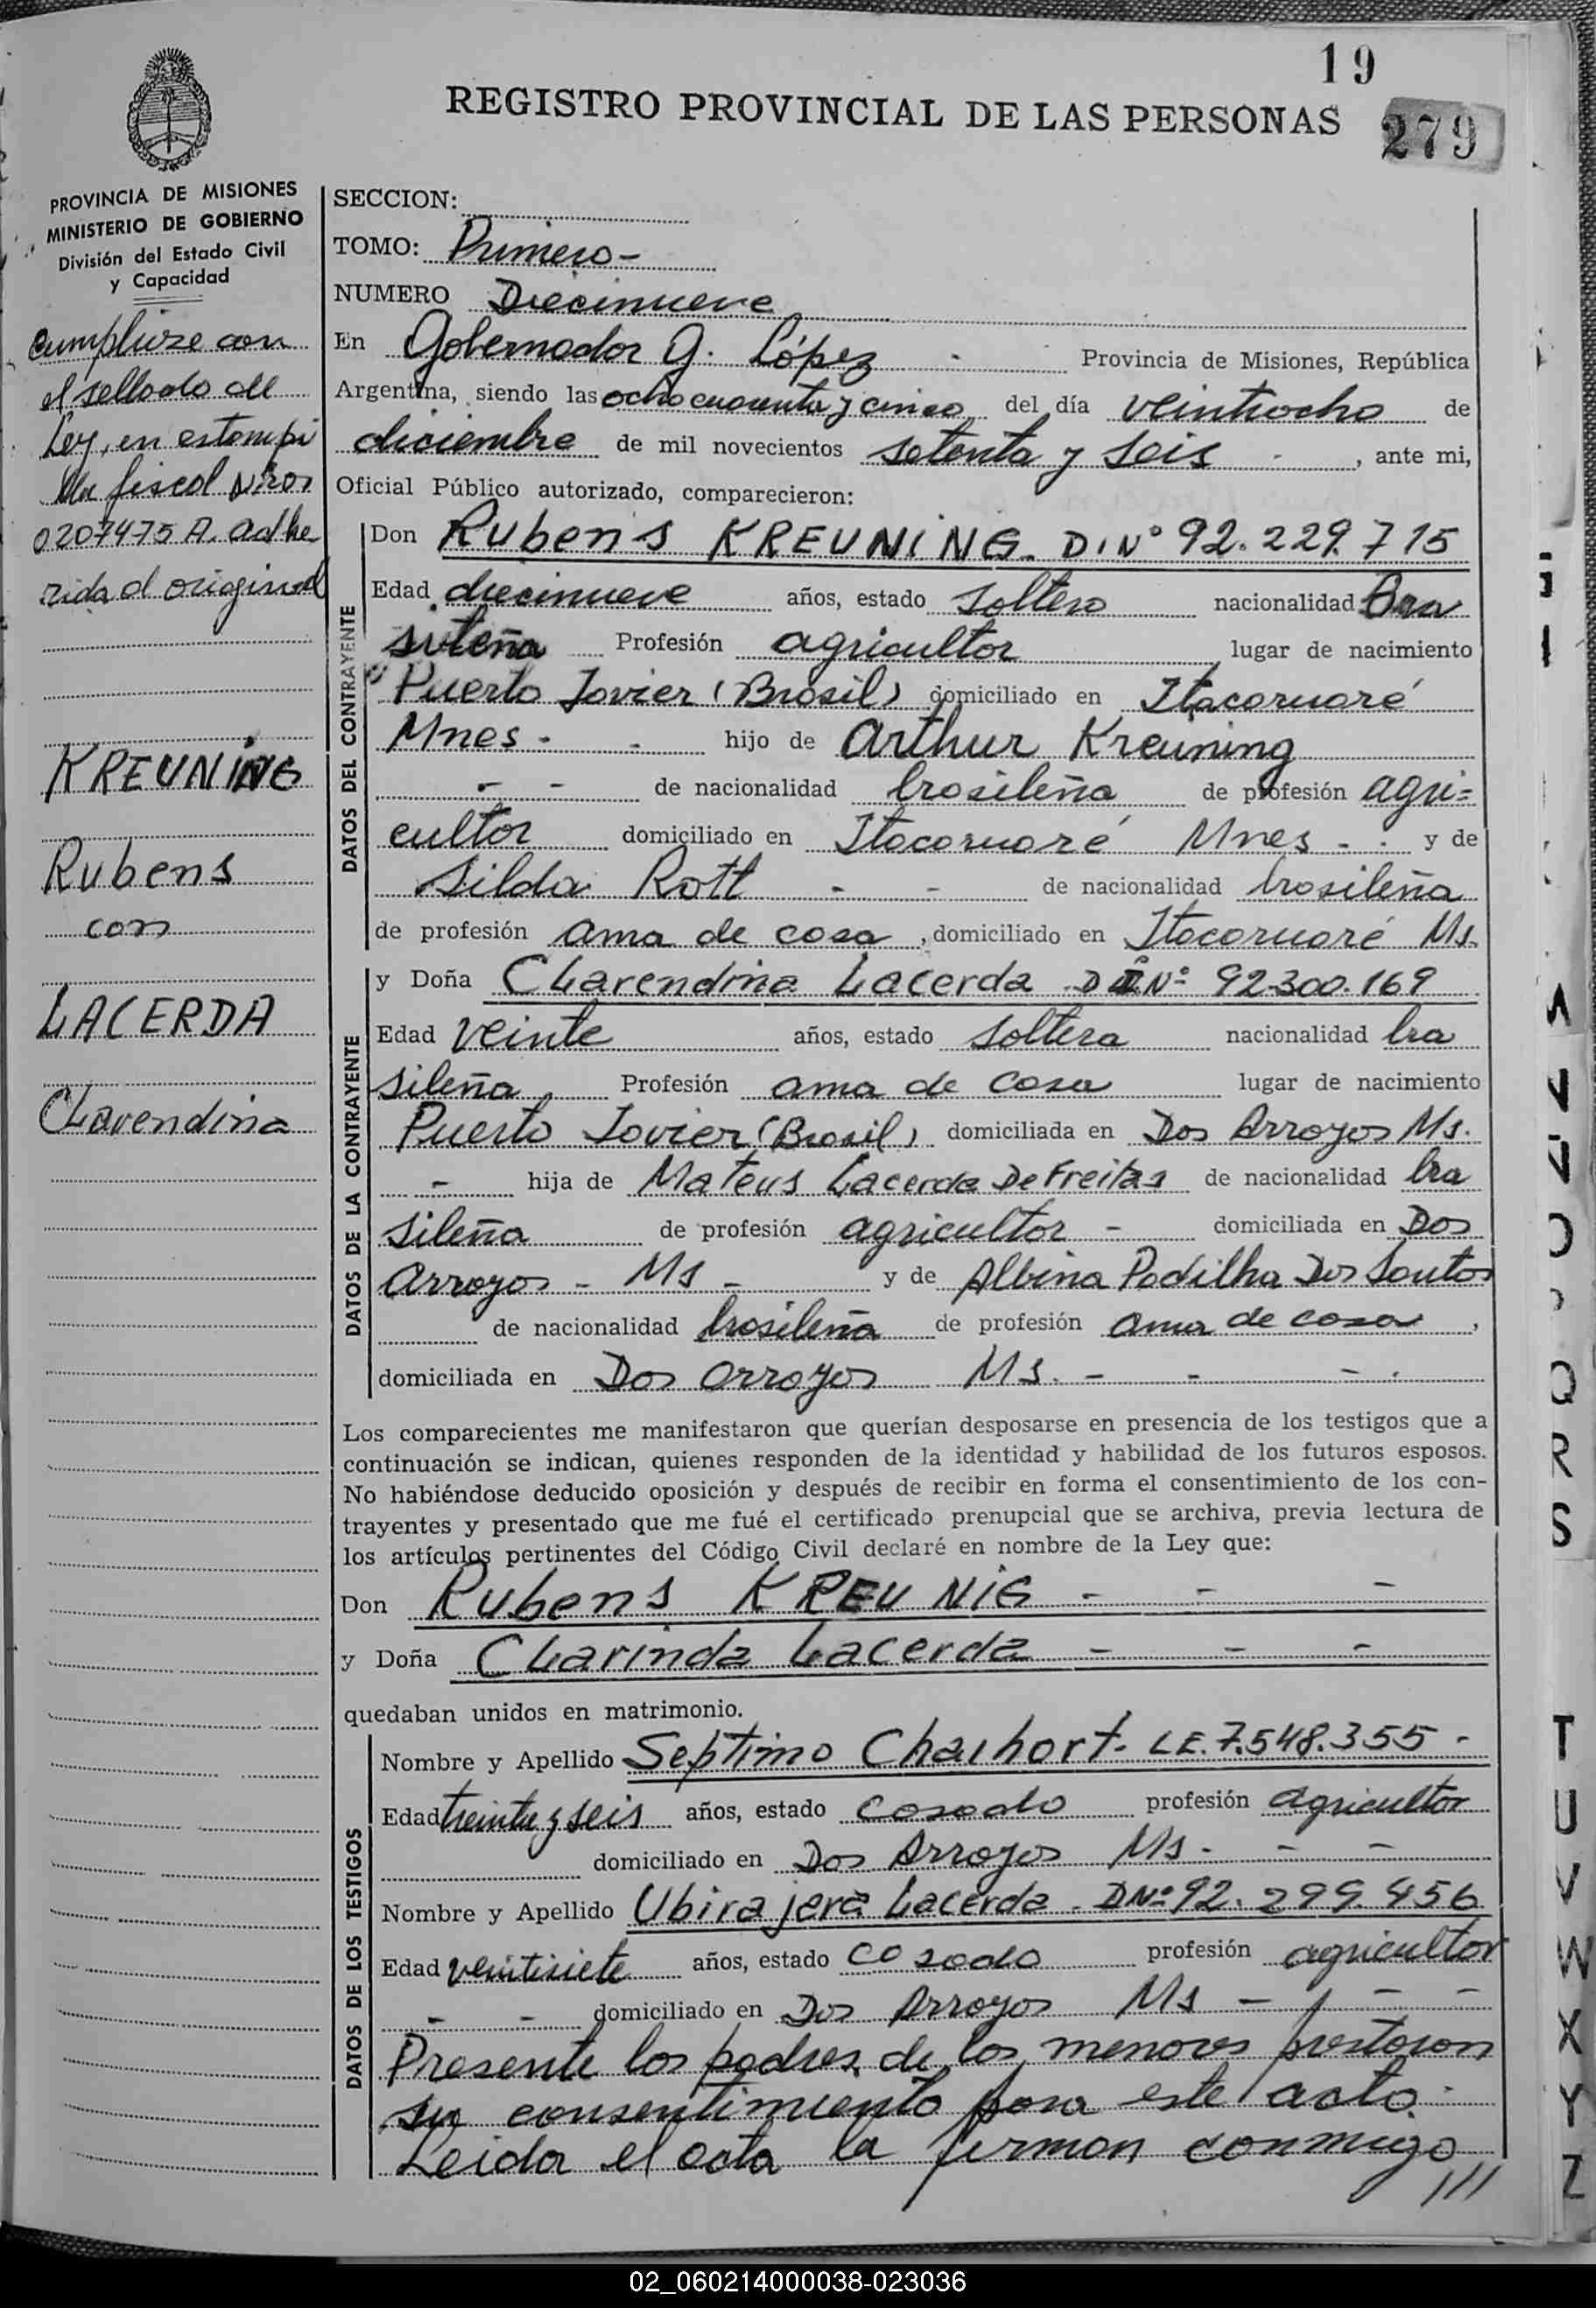 19
REGISTRO PROVINCIAL DE LAS PERSONAS
279
PROVINCIA DE MISIONES
MINISTERIO DE GOBIERNO
División del Estado Civil
y Capacidad
Cumplióse con
el sellado de
Ley, en estampi
lla fiscal Nros
0207475 A. adhe
rida al original
KREUNING
Rubens
con
LACERDA
Clarendina
SECCION:
TOMO: Primero -
NUMERO Diecinueve
En Gobernador G. López - Provincia de Misiones, República
Argentina, siendo las ocho cuarenta y cinco del día veintiocho de
diciembre de mil novecientos setenta y seis - , ante mi,
Oficial Público autorizado, comparecieron:
DATOS DEL CONTRAYENTE
Don Rubens KREUNING. D.N° 92.229.715
Edad diecinueve años, estado soltero nacionalidad Bra
sileña Profesión agricultor lugar de nacimiento
Puerto Javier (Brasil) domiciliado en Itacaruaré
Mnes - - hijo de Arthur Kreuning
- - de nacionalidad brasileña de profesión agri=
cultor domiciliado en Itacaruaré Mnes - - y de
Silda Rott - - de nacionalidad brasileña
de profesión ama de casa , domiciliado en Itacaruaré Ms.
DATOS DE LA CONTRAYENTE
y Doña Clarendina Lacerda DIN° 92.300.169
Edad veinte años, estado soltera nacionalidad bra
sileña Profesión ama de casa lugar de nacimiento
Puerto Javier (Brasil) domiciliada en Dos Arroyos Ms.
- hija de Mateus Lacerda De Freitas de nacionalidad bra
sileña de profesión agricultor - domiciliada en Dos
Arroyos - Ms - y de Albina Padilha Dos Santos
de nacionalidad brasileña de profesión ama de casa ,
domiciliada en Dos Arroyos Ms. - - - .
Los comparecientes me manifestaron que querían desposarse en presencia de los testigos que a
continuación se indican, quienes responden de la identidad y habilidad de los futuros esposos.
No habiéndose deducido oposición y después de recibir en forma el consentimiento de los con-
trayentes y presentado que me fué el certificado prenupcial que se archiva, previa lectura de
los artículos pertinentes del Código Civil declaré en nombre de la Ley que:
Don Rubens KREUNIG - - -
y Doña Clarinda Lacerda - - -
quedaban unidos en matrimonio.
DATOS DE LOS TESTIGOS
Nombre y Apellido Septimo Chaihort. LE. 7.548.355 -
Edad treinta y seis años, estado casado profesión agricultor
domiciliado en Dos Arroyos Ms - - -
Nombre y Apellido Ubirajara Lacerda. DN° 92.299.456
Edad veintisiete años, estado casado profesión agricultor
- - domiciliado en Dos Arroyos Ms - - -
Presente los padres de los menores prestaron
su consentimiento para este acto.
Leida el acta la firman conmigo
///
Q
R
S
T
U
V
W
X
Y
Z
02_060214000038-023036